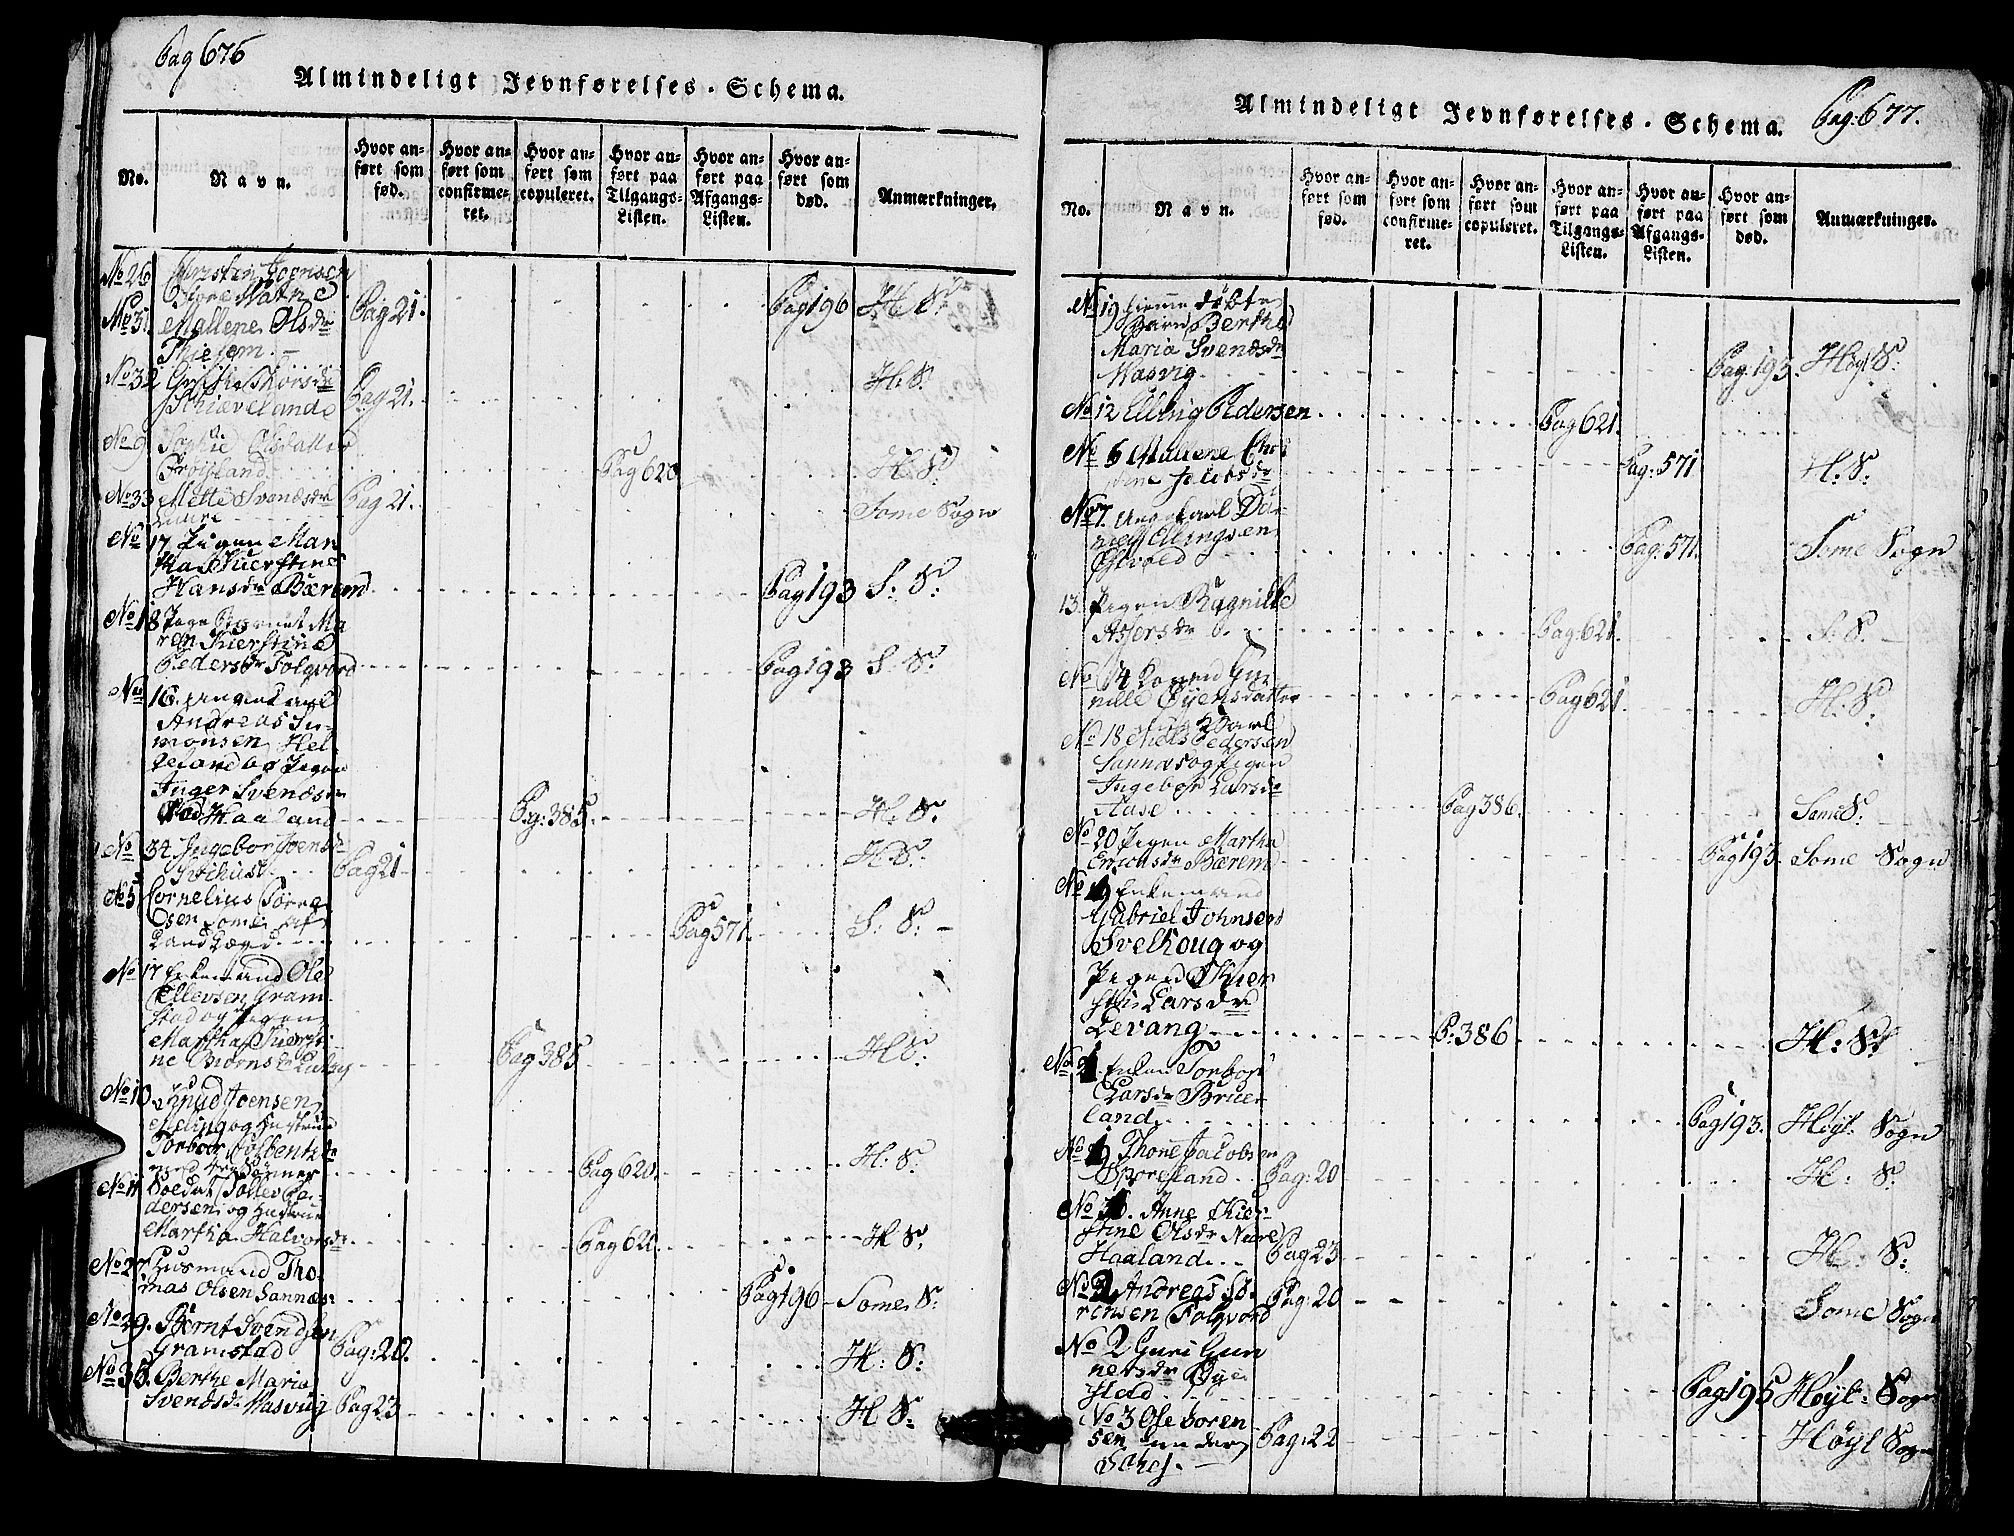 Pag 676
Almindeligt Jevnførelses-Schema.
No.
Navn.
Hvor anført som fød.
Hvor anført som confirmeret.
Hvor anført som copuleret.
Hvor anført paa Tilgangs-Listen.
Hvor anført paa Afgangs-Listen.
Hvor anført som død.
Anmærkninger.
No 26 Joensen
Pag 196 H: S:
No 31 Mallene Olsdr Pag 21.
No 32
Schievelande Pag 21. H: S:
No 9
Frøyland Pag 620 H: S:
No 33 Mette Svendsdr Pag 21. Some Sogn
No 17 Pigen Mar
tha Kierstine
Hansdr Bærem Pag 193 S: S:
No 18 Ma
ren Kierstine
Pedersdr Folqvord Pag 193 S: S:
No 16. ungekarl
Andreas Si-
monsen Hel-
leland og Pigen
Inger Svendsdr
Haaland Pag: 385. H: S:
No 34 Ingebor Joensdr
Pag 21 H: S:
No 5 Cornelius Tørre
sen Some af
Land Lægd Pag 571. S: S:
No 17 Enkemand Ole
Ellevsen Gram-
stad og Pigen
Martha Kiersti-
ne Biørnsdr Pag 385 H: S:
No 10. Knud Joensen
og Hustrue
Torbor
med tre Sønner Pag 620. H: S:
No 11 Soldat Tollev Pe-
dersen og Hustrue
Martha Halvorsdr Pag 620. H S:
No 27 Husmand Tho-
mas Olsen Sannæs Pag 196 Some S:
No 29. Bernt Svendsen
Gramstad Pag: 20. H: S:
No 35. Berthe Maria
Svendsdr Hasvig Pag 23 H S:
Pag: 677.
Almindeligt Jevnførelses-Schema.
No.
Navn.
Hvor anført som fød.
Hvor anført som confirmeret.
Hvor anført som copuleret.
Hvor anført paa Tilgangs-Listen.
Hvor anført paa Afgangs-Listen.
Hvor anført som død.
Anmærkninger.
No 19 hiemme døbte
Barn Berthe
Maria Svendsdr
Hasvig Pag: 193. Høyl S:
No 12 Elling Pedersen Pag 621.
No 6 Mallene
Jacobsdr Pag: 571 H: S:
No 7. Ungekarl Da-
niel Ellingsen
Østvold Pag: 571. Some Sogn
13. Pigen Ragnille
Assersdr Pag: 621. S: S:
No 14 Konen Gu-
nille Øyensdatter Pag 621. H: S:
No 18 Niels Pedersen
Sannæs og Pigen
Ingebor Larsdr
Aase Pag 386. Some S:
No 20 Pigen Martha
Ericksdr Bærem Pag 193. Some Sogn
No 19 Enkemand
Gabriel Johnsen
Svelkoug og
Pigen Kier
sti Larsdr
Levang P: 386 H: S:
No 21. Enken Torbor
Larsdr Brue-
land Pag 193. Høyl: Sogn
No 1 Thone Jacobsen
Sporesland Pag: 20 H: S:
No 36. Anne Kier-
stine Olsdr Nære
Haaland Pag 23 H: S:
No 2 Andreas Sø-
rensen Folqvord Pag: 20 Some Sogn
No 2 Guri Gun
nersdr
Pag 195 Høyl: Sogn
No 3 Ole Soren
sen Pag: 22 Høyl Sogn